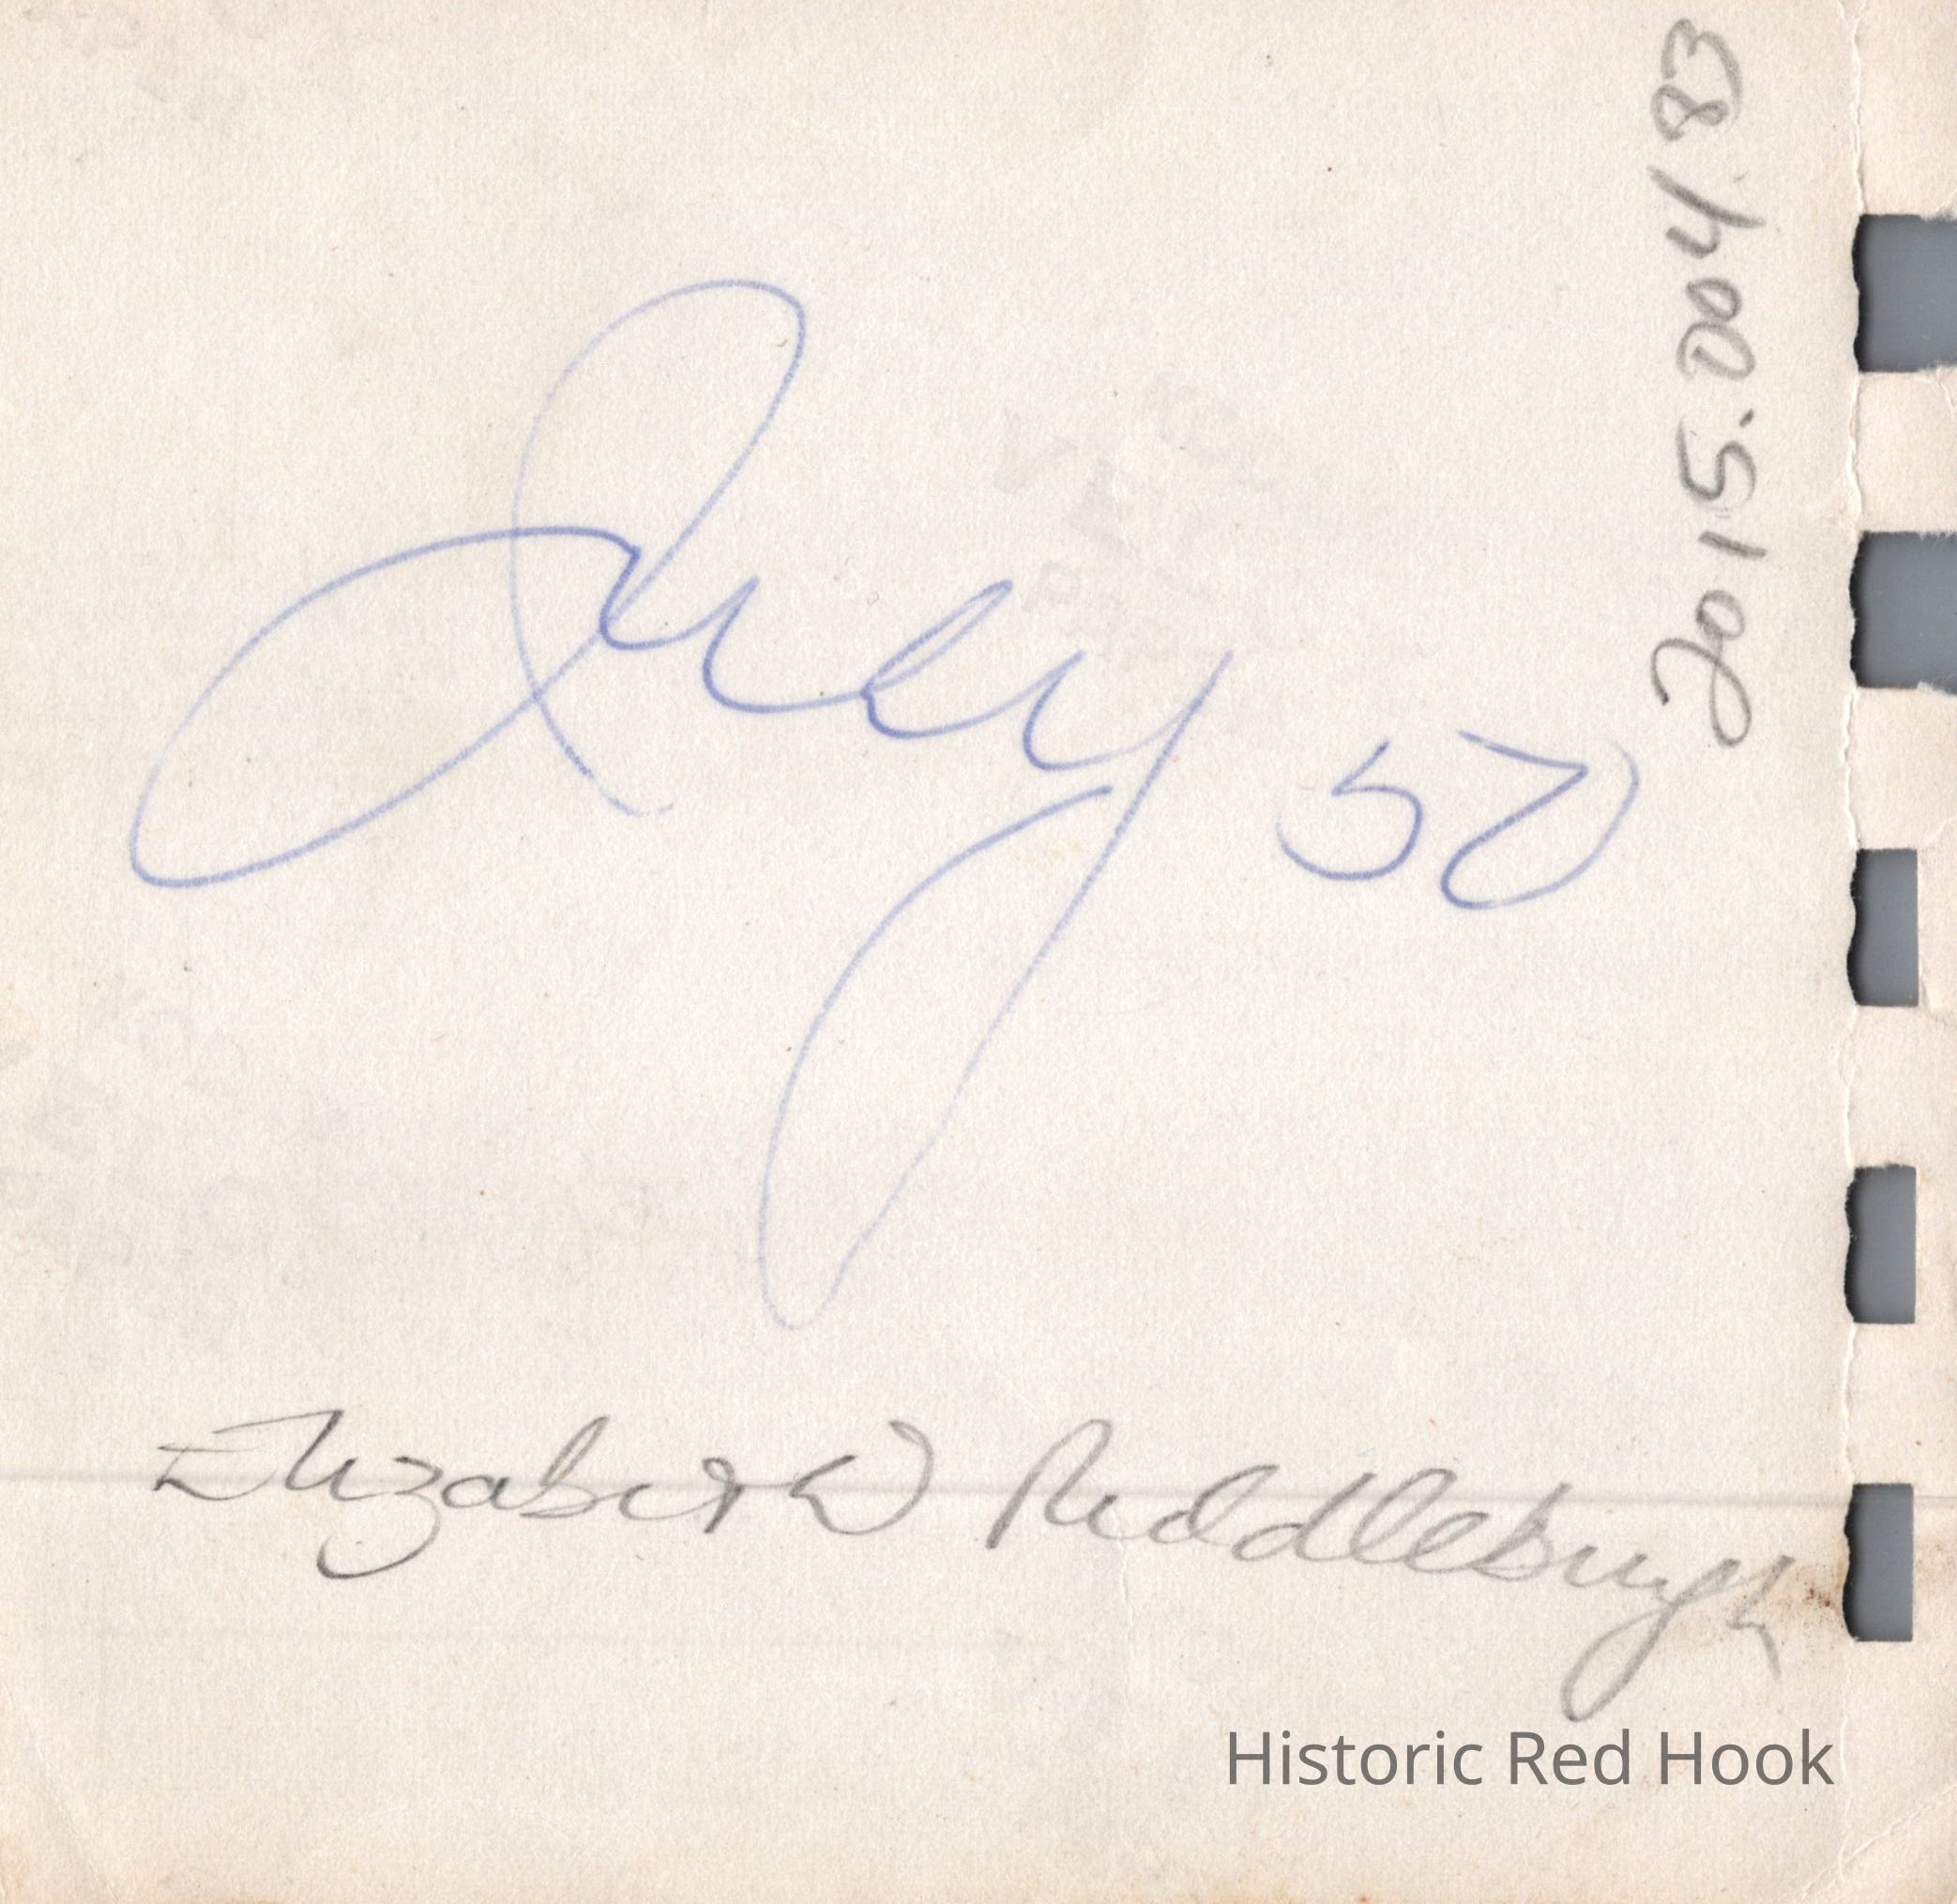 2015.004.83
July 50
Elizabeth Middleburgh
Historic Red Hook